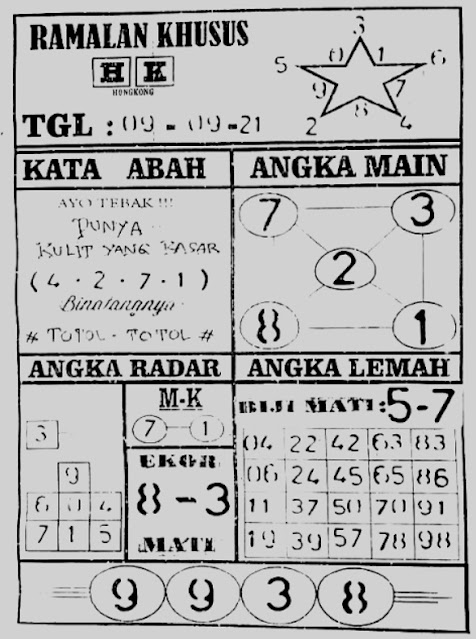 RAMALAN KHUSUS
H K
HONGKONG
TGL : 09 - 09 -21
3
5 0 1 6
9 7
2 8 4
KATA ABAH
AYO TEBAK !!!
PUNYA
KULIT YANG KASAR
( 4 · 2 · 7 · 1 )
Binatangnya
# TOTOL - TOTOL #
ANGKA MAIN
7 3
2
8 1
ANGKA RADAR
3
9
6 0 4
7 1 5
M-K
7 1
EKOR
8 - 3
MATI
ANGKA LEMAH
BIJI MATI: 5-7
04 22 42 63 83
06 24 45 65 86
11 37 50 70 91
19 39 57 78 98
9 9 3 8